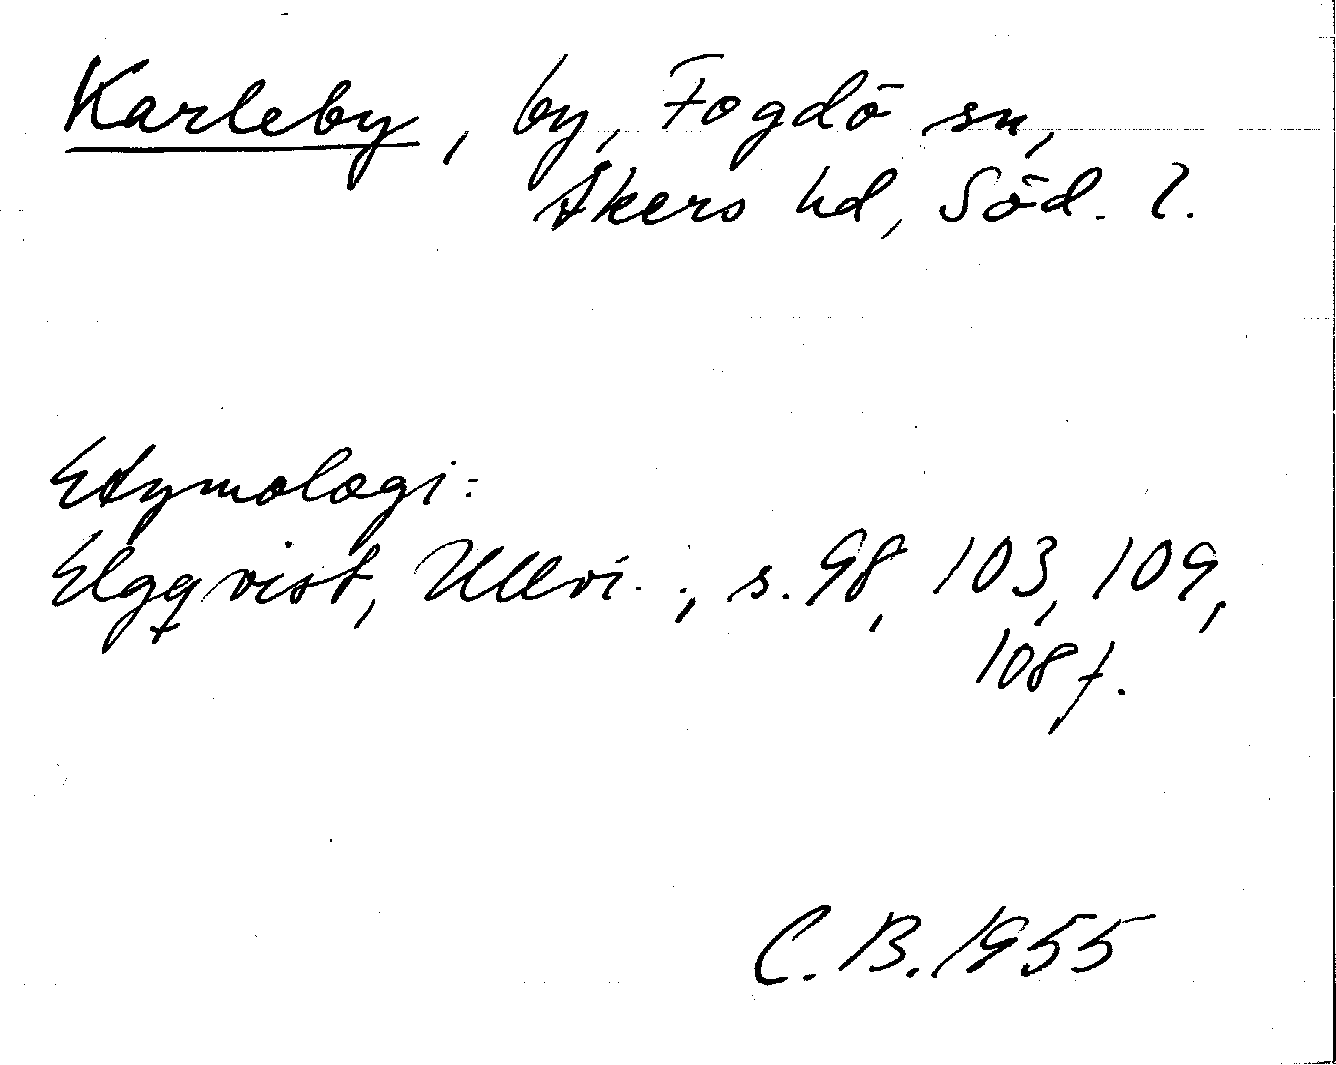 Karleby, by, Fogdö sn,
Åkers hd, Söd. l.
Etymologi:
Elgqvist, Ullvi.., s. 98, 103, 109,
108 f.
C. B. 1955